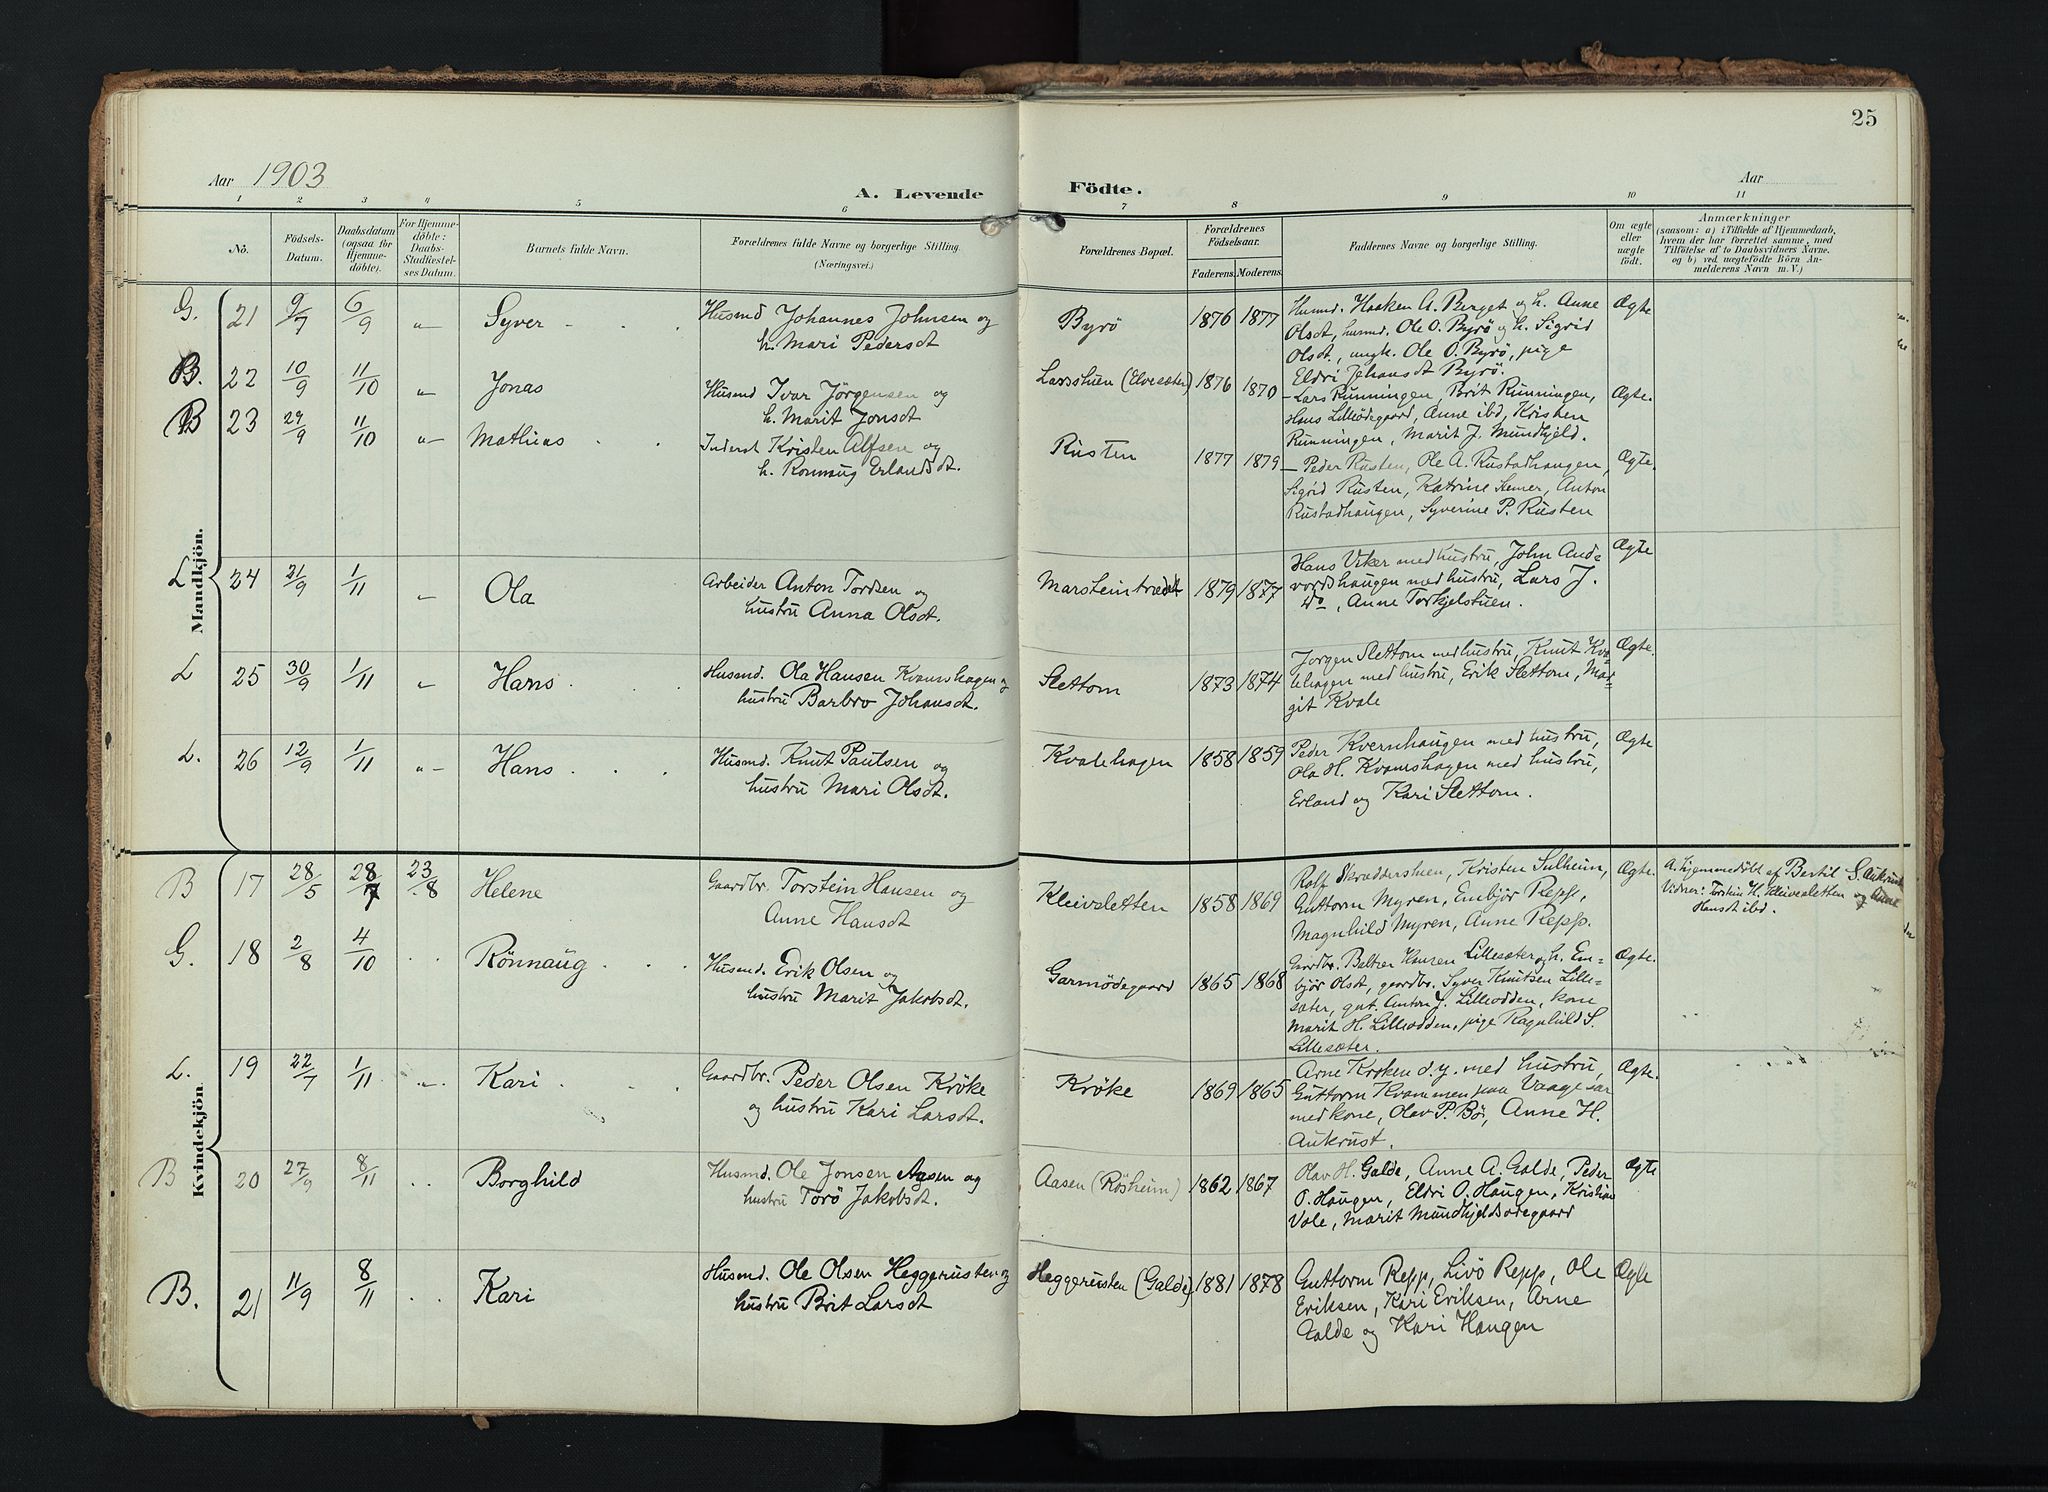 25
Aar 1903
A. Levende
Födte.
Aar
1 2 3 4 5 6 7 8 9 10 11
No.
Födsels-Datum.
Daabsdatum (ogsaa for Hjemmedöbte).
For Hjemmedöbte: Daabs-Stadfæstelses Datum.
Barnets fulde Navn.
Forældrenes fulde Navne og borgerlige Stilling. (Næringsvei.)
Forældrenes Bopæl.
Forældrenes Födselsaar.
Faderens. Moderens.
Faddernes Navne og borgerlige Stilling.
Om ægte eller uægte födt.
Anmærkninger
(saasom: a) i Tilfælde af Hjemmedaab, hvem der har forrettet samme, med Tilföielse af to Daabsvidners Navne, og b) ved uægtefödte Börn Anmelderens Navn m. V.)
Mandkjön.
G. 21 9/7 6/9 " Syver
Husmd Johannes Johnsen og
h. Mari Pedersdt
Byrö 1876 1877
Husmd. Haaken A. Berget og h. Anne
Olsdt, husmd. Ole O. Byrö og h. Sigrid
Olsdt., ungk. Ole O. Byrö, pige
Eldri Johansdt Byrö.
Ægte
B. 22 10/9 11/10 " Jonas
Husmd Ivar Jörgensen og
h. Marit Jonsdt
Larsstuen (Elvesæter) 1876 1870
Lars Runningen, Brit Runningen,
Hans Lilleödegaard, Anne ibd, Kristen
Runningen, Marit J. Mundhjeld.
Ægte.
B 23 29/9 11/10 " Mathias
Inderst Kristen Alfsen og
h. Ronnaug Erlandsdt.
Rusten 1877 1879
Peder Rusten, Ole A. Rustadhaugen,
Sigrid Rusten, Katrine Kemer, Anton
Rustadhaugen, Syverine P. Rusten
Ægte.
L 24 21/9 1/11 " Ola
Arbeider Anton Tordsen og
hustru Anna Olsdt.
Marsteintrædet 1879 1877
Hans Viker med hustru, John And=
vordshaugen med hustru, Lars J.
do, Anne Torkjelstuen.
Ægte
L 25 30/9 1/11 " Hans
Husmd. Ola Hansen Kvamshagen og
hustru Barbro Johansdt.
Slettom 1873 1874
Jorgen Slettom med hustru, Knut Kva=
lehagen med hustru, Erik Slettom, Mar=
git Kvale
Ægte.
L. 26 12/9 1/11 " Hans
Husmd. Knut Paulsen og
hustru Mari Olsdt.
Kvalehagen 1858 1859
Peder Kvernhaugen med hustru,
Ola H. Kvamshagen med hustru,
Erland og Kari Slettom.
Ægte
Kvindekjön
B 17 28/5 28/7 23/8 Helene
Gaardbr. Torstein Hansen og
Anne Hansdt
Kleivsletten 1858 1869
Rolf Skræddershien, Kristen Sulheim,
Guttorm Myren, Embjör Repp,
Magnhild Myren, Anne Repp.
Ægte.
A. hjemmedöbt af Bertil S. Aukrust
Vidner: Torstein H. Kleivesletten og Anne
Hansdt ibd.
G. 18 2/8 4/10 Rönnaug
Husmd. Erik Olsen og
hustru Marit Jakobsdt.
Garmödegaard 1865 1868
Gaardbr. Baltzer Hansen Lillesæter og h. Em=
björ Olsdt, gaardbr. Syver Knutsen Lille=
sæter, gut. Anton J. Lilleodden, kone
Marit H. Lilleodden, pige Ragnhild S.
Lillesæter.
Ægte.
L. 19 22/7 1/11 " Kari
Gaardbr. Peder Olsen Kröke
og hustru Kari Larsdt.
Kröke 1869 1865
Arne Kroken d.y. med hustru,
Guttorm Kvammen paa Vaagesar
med kone, Olav P. Bö, Anne H.
Aukrust.
Ægte.
B 20 27/9 8/11 Borghild
Husmd. Ole Jonsen Aasen og
hustru Torö Jakobsdt.
Aasen (Rösheim) 1862 1867
Olav H. Galde, Anne A. Galde, Peder
O. Haugen, Eldri O. Haugen, Kristian
Vole, Marit Mundhjeldsödegaard
Ægte
B. 21 11/9 8/11 Kari
Husmd. Ole Olsen Heggerusten og
hustru Brit Larsdt
Heggerusten (Galde) 1881 1878
Guttorm Repp, Livö Repp, Ole
Eriksen, Kari Eriksen, Arne
Galde og Kari Haugen
Ægte